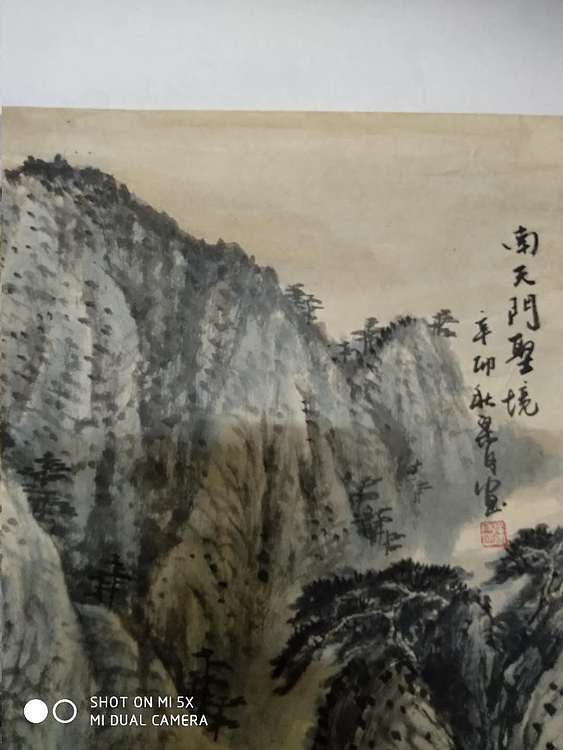 南天門聖境
辛卯秋泉月寫
SHOT ON MI 5X
MI DUAL CAMERA